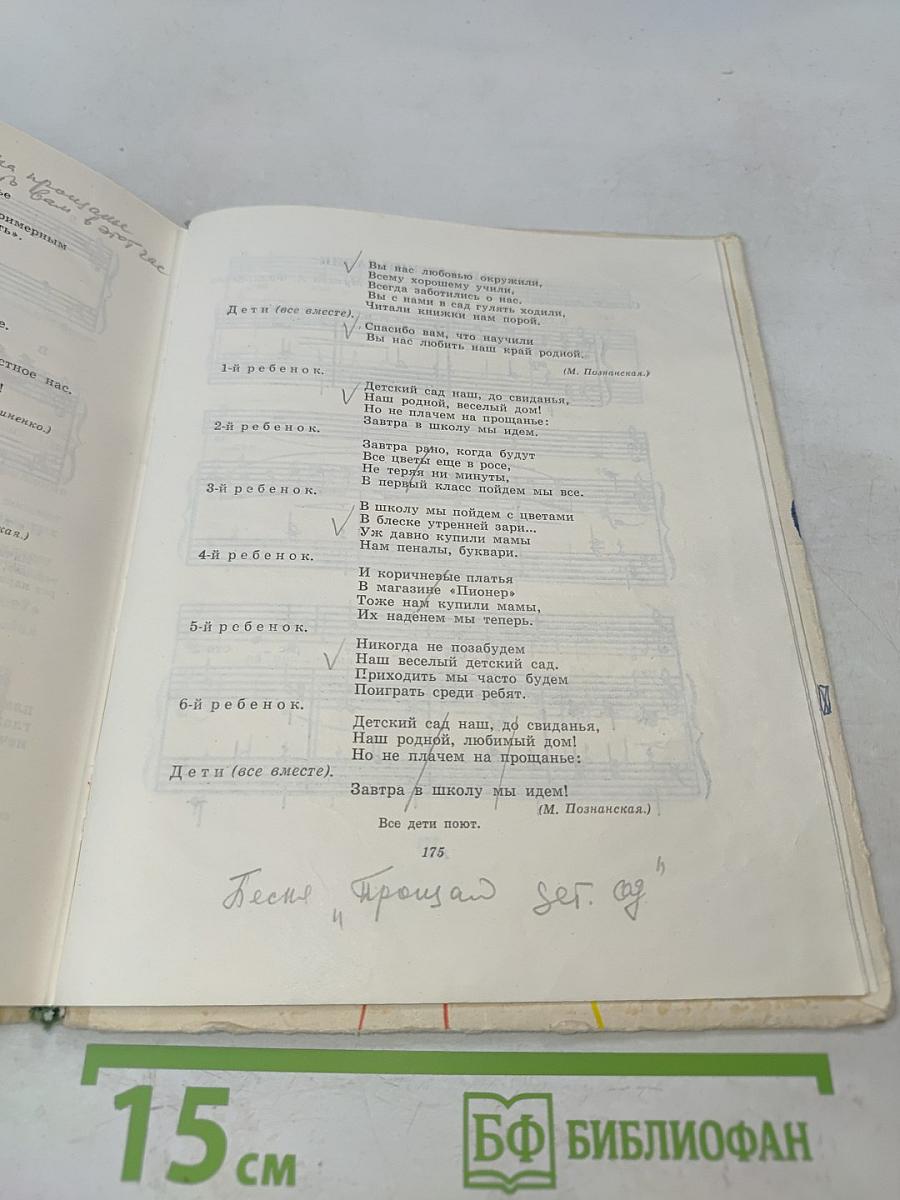 на прощание
вам в этот час
римерным
ть».
е.
стное нас.
иненко.)
кая.)
Вы нас любовью окружили,
Всему хорошему учили,
Всегда заботились о нас.
Вы с нами в сад гулять ходили,
Читали книжки нам порой.
Дети (все вместе).
Спасибо вам, что научили
Вы нас любить наш край родной.
(М. Познанская.)
1-й ребенок.
Детский сад наш, до свиданья,
Наш родной, веселый дом!
Но не плачем на прощанье:
Завтра в школу мы идем.
2-й ребенок.
Завтра рано, когда будут
Все цветы еще в росе,
Не теряя ни минуты,
В первый класс пойдем мы все.
3-й ребенок.
В школу мы пойдем с цветами
В блеске утренней зари...
Уж давно купили мамы
Нам пеналы, буквари.
4-й ребенок.
И коричневые платья
В магазине «Пионер»
Тоже нам купили мамы,
Их наденем мы теперь.
5-й ребенок.
Никогда не позабудем
Наш веселый детский сад.
Приходить мы часто будем
Поиграть среди ребят.
6-й ребенок.
Детский сад наш, до свиданья,
Наш родной, любимый дом!
Но не плачем на прощанье:
Дети (все вместе).
Завтра в школу мы идем!
(М. Познанская.)
Все дети поют.
175
Песня „Прощай дет. сад"
15 см
БФ БИБЛИОФАН